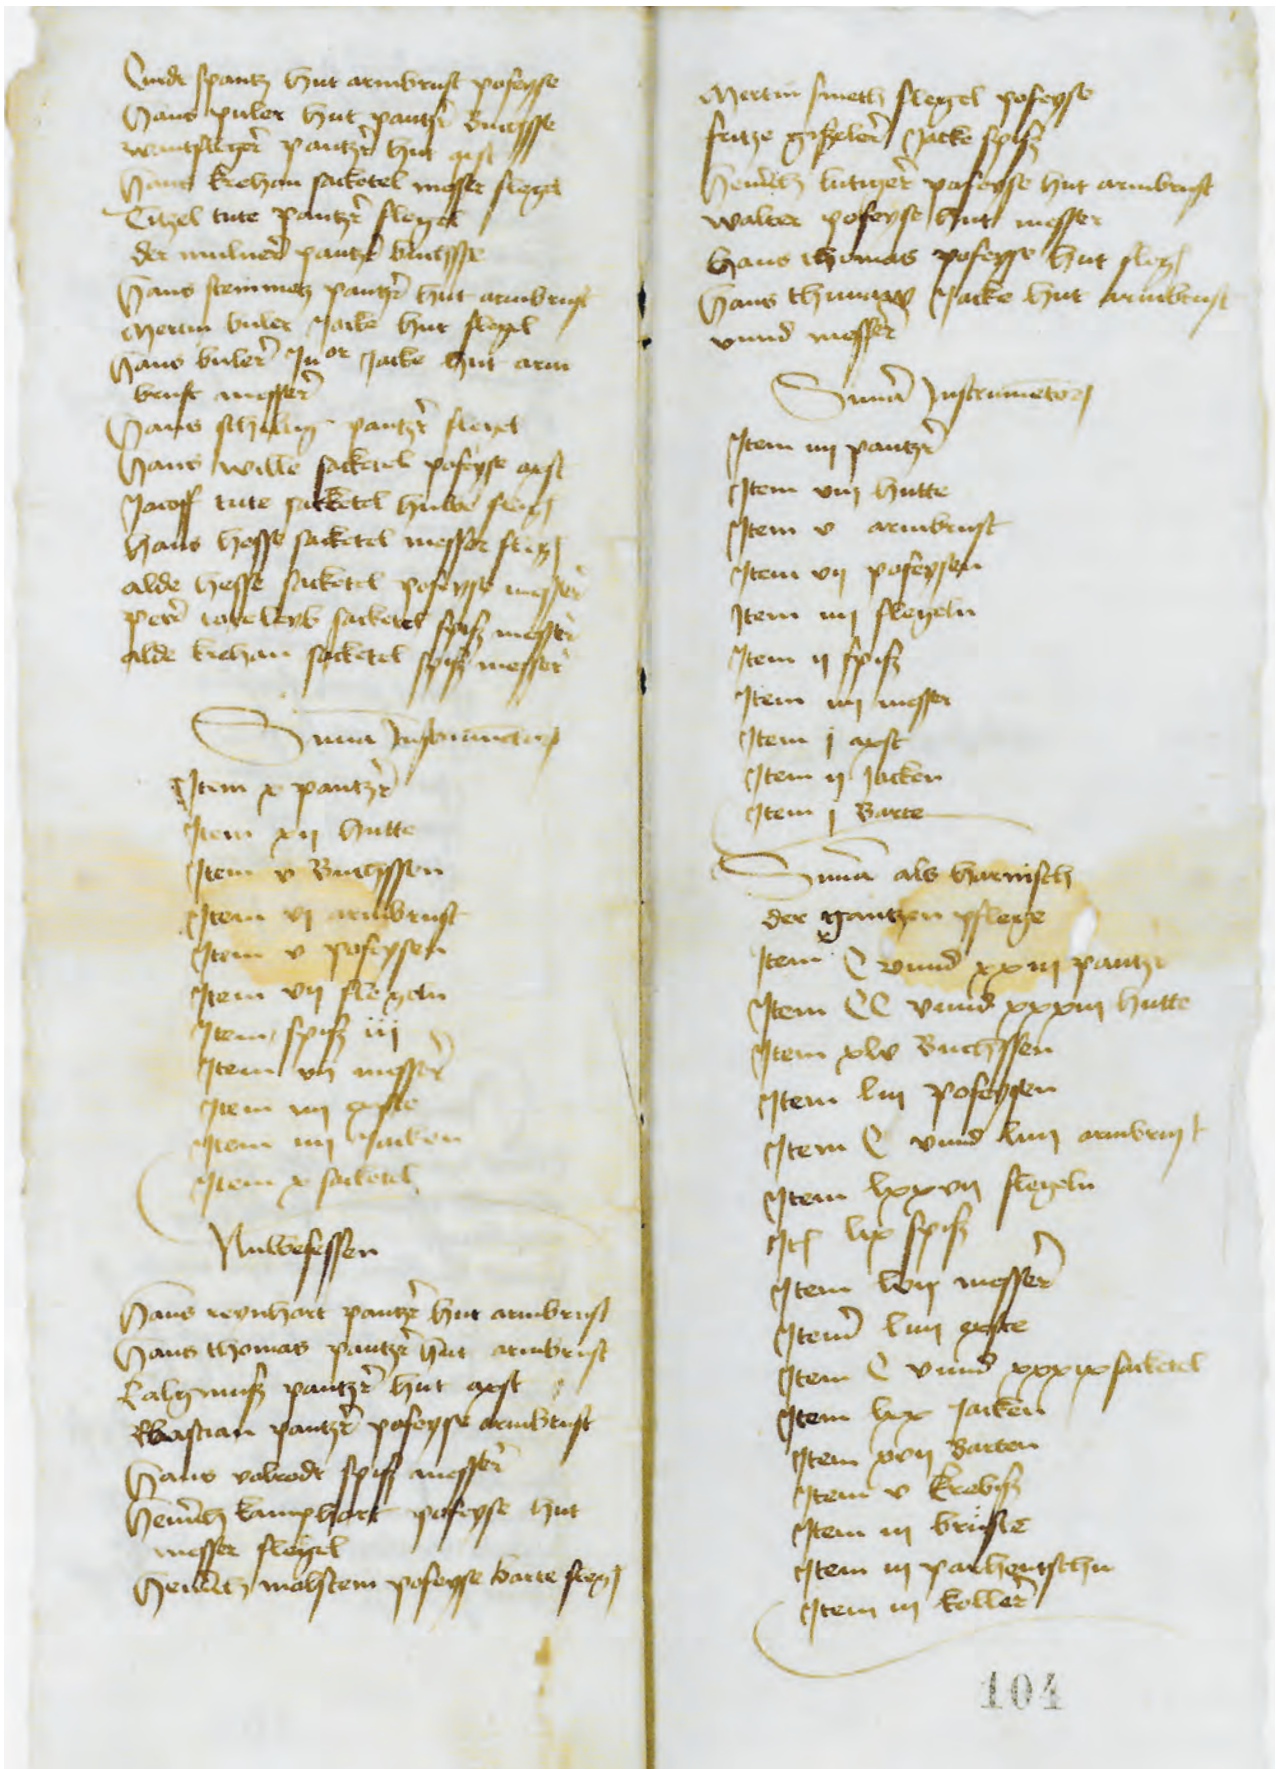 Curdt spantz hut armbrust poseyse
Hans puler hut pantzer Buchsse
pantzer hut axst
Hans krehan sacketel messer flegel
Titzel tute pantzer flegel
der mulner pantzer buchsse
Hans steinmetz pantzer hut armbrust
Mertin buler Jacke hut flegel
Hans buler Junior Jacke hut arm
brust messer
Hans schillig pantzer flegel
Hans wille sacketel poseyse axst
Jacoff tute sacketel hube flegel
Hans hesse sacketel messer flegel
alde hesse sacketel poseyse messer
sacketel spisz messer
alde krehan sacketel spisz messer
Summa Instrumentorum
Item x pantzer
Item xij hutte
Item v Buchssen
Item vj armbrust
Item v poseysen
Item vij flegeln
Item spisz iij
Item vij messer
Item iiij exste
Item iiij Jacken
Item x sacketel
Nuwesessen
Hans reynhart pantzer hut armbrust
Hans thomas pantzer hut armbrust
pantzer hut axst
Bastian pantzer poseyse armbrust
Hans volrodt spisz messer
Heinrich kamphart poseyse hut
messer flegel
Heinrich molstein poseyse barte flegel
Mertin smeth flegel poseyse
fritze giszeler Jacke spisz
Heinrich lutiger poseyse hut armbrust
walter poseyse hut messer
Hans thomas poseyse hut flegel
Hans Jacke hut armbrust
vnnd messer
Summa Instrumentorum
Item iiij pantzer
Item viij hutte
Item v armbrust
Item vij poseysen
Item iiij flegeln
Item ij spisz
Item iiij messer
Item j axst
Item ij Jacken
Item j Barte
Summa als harnisch
der gantzen pflege
Item C vnnd xxiij pantzer
Item CC vnnd xxxiij hutte
Item xlv Buchssen
Item liij poseysen
Item C vnnd liiij armbrust
Item lxxvij flegeln
Item lix spisz
Item lvij messer
Item liiij exste
Item C vnnd xxxix sacketel
Item lxx Jacken
Item xvij Barten
Item v krebisz
Item iij bruste
Item iij
Item iij koller
104